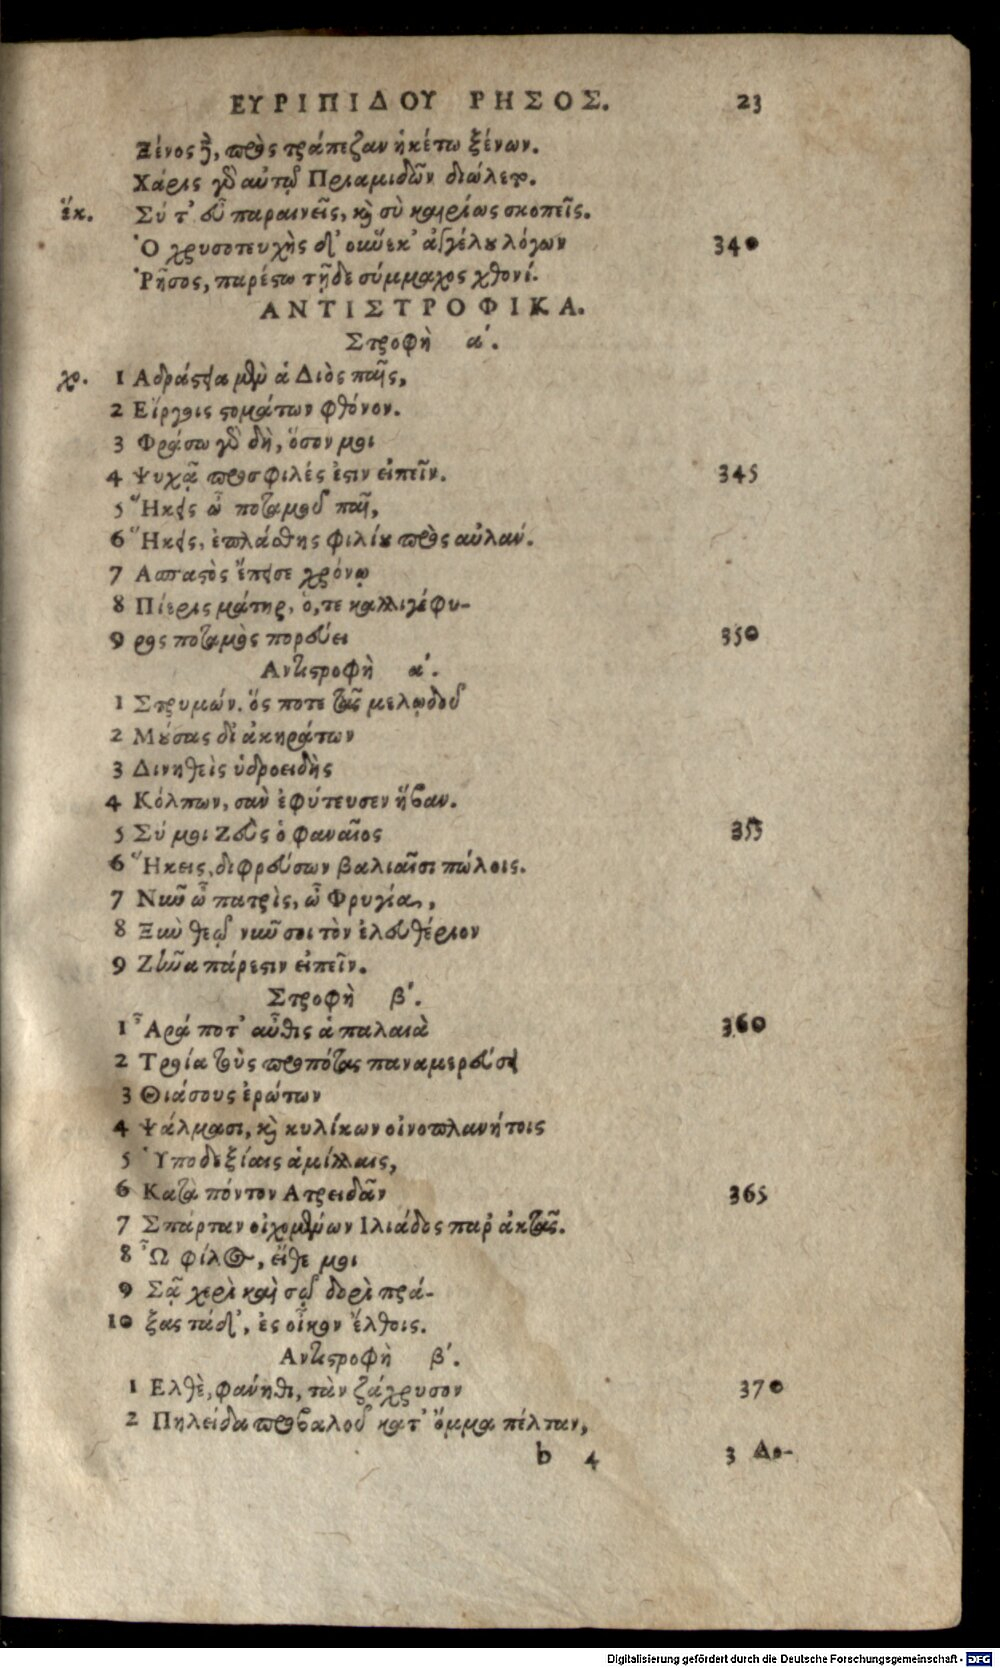 ΕΥΡΙΠΙΔΟΥ ΡΗΣΟΣ. 23
Ξένος δὲ, πρὸς τράπεζαν ἡκέτω ξένων.
Χάρις γὰρ αὐτῷ Πριαμιδῶν διώλετο.
ἕκ. Σύ τ' εὖ παραινεῖς, καὶ σὺ καιρίως σκοπεῖς.
Ὁ χρυσοτευχὴς δ' οὕνεκ' ἀγγέλου λόγων 340
Ῥῆσος, παρέστω τῇδε σύμμαχος χθονί.
ΑΝΤΙΣΤΡΟΦΙΚΑ.
Στροφὴ α'.
χο. 1 Αδράστεια μὲν ἁ Διὸς παῖς,
2 Είργοις στομάτων φθόνον.
3 Φράσω γὰρ δὴ, ὅσον μοι
4 Ψυχᾷ προσφιλές ἐστιν εἰπεῖν. 345
5 Ἥκεις ὦ ποταμοῦ παῖ,
6 Ἥκεις, ἐπλάθης φιλίου πρὸς αὐλάν.
7 Ασπαστὸς ἔπεισε χρόνῳ
8 Πίερις μάτηρ, ὁ, τε καλλιγέφυ-
9 ρος ποταμὸς πορεύει 350
Αντιστροφὴ α'.
1 Στρυμών. ὅς ποτε τᾶς μελῳδοῦ
2 Μούσας δι' ἀκηράτων
3 Δινηθεὶς ὑδροειδὴς
4 Κόλπων, σὰν ἐφύτευσεν ἥβαν.
5 Σύ μοι Ζεὺς ὁ φαναῖος 355
6 Ἥκεις, διφρεύσων βαλιαῖσι πώλοις.
7 Νῦν ὦ πατρὶς, ὦ Φρυγία,
8 Ξὺν θεῷ νῦν σοι τὸν ἐλευθέριον
9 Ζῆνα πάρεστιν εἰπεῖν.
Στροφὴ β'.
1 Ἆρά ποτ' αὖθις ἁ παλαιὰ 360
2 Τροία τοὺς προπότας παναμερεύσει
3 Θιάσους ἐρώτων
4 Ψάλμασι, καὶ κυλίκων οἰνοπλανήτοις
5 Ὑποδεξίαις ἁμίλλαις,
6 Κατὰ πόντον Ατρειδᾶν 365
7 Σπάρταν οἰχομένων Ιλιάδος παρ' ἀκτᾶς.
8 Ὦ φίλος, εἴθε μοι
9 Σᾷ χερὶ καὶ σῷ δορὶ πρά-
10 ξας τάδ', ἐς οἶκον ἔλθοις.
Αντιστροφὴ β'.
1 Ελθὲ, φάνηθι, τὰν ζάχρυσον 370
2 Πηλείδα προβαλοῦ κατ' ὄμμα πέλταν,
b 4 3 Δο-
Digitalisierung gefördert durch die Deutsche Forschungsgemeinschaft - DFG